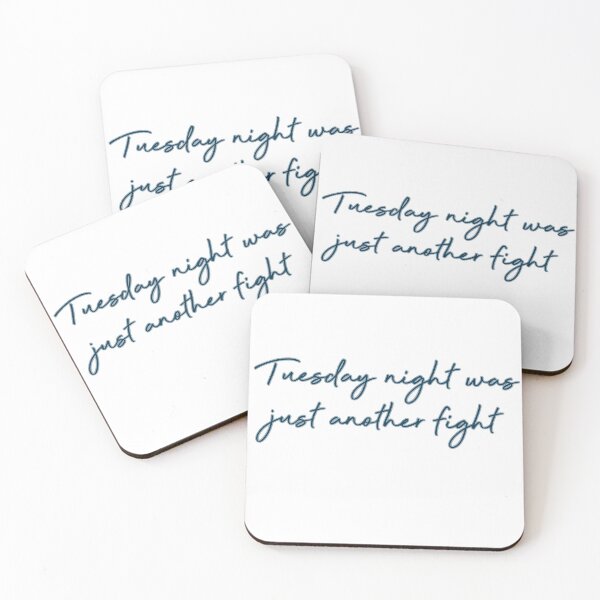 Tuesday night was
just another fight
Tuesday night was
just another fight
Tuesday night was
just another fight
Tuesday night was
just another fight